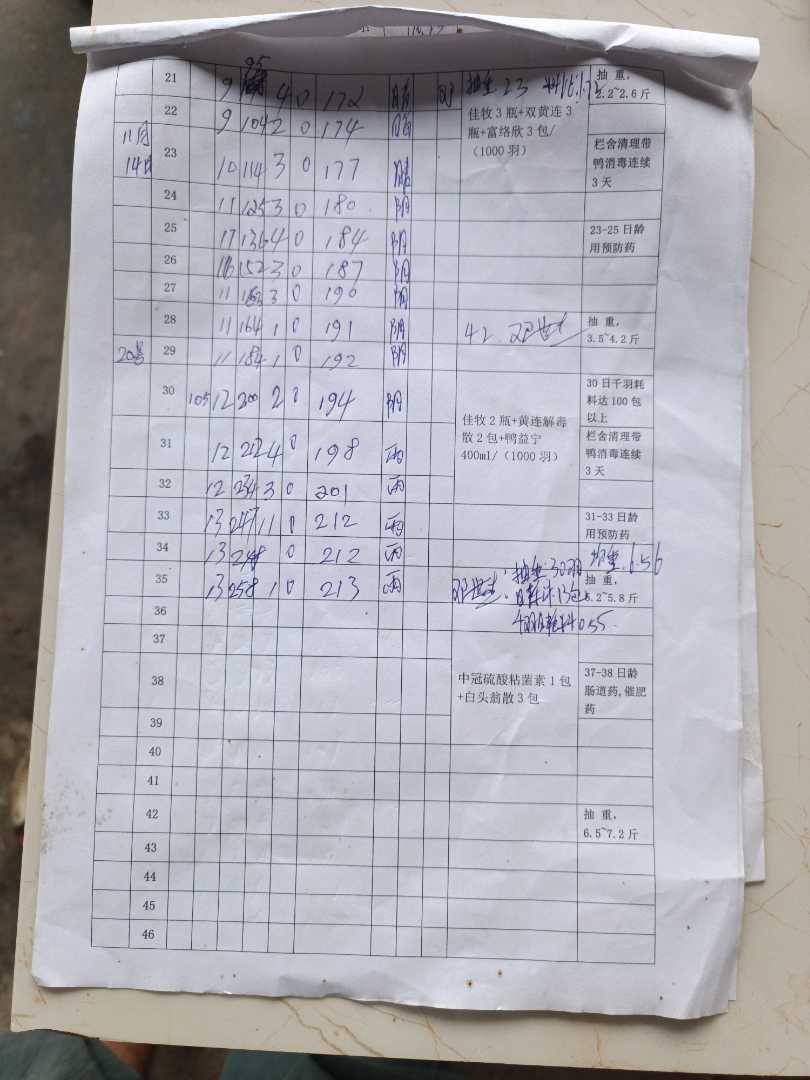 21 9 95 4 0 172 晴 抽重 23 抽 重,
2.2~2.6 斤
22 9 104 2 0 174 佳牧 3 瓶+双黄连 3
瓶+富络欣 3 包/
(1000 羽)
11月
14日
23 10 114 3 0 177 栏舍清理带
鸭消毒连续
3 天
24 11 125 3 0 180 阴
25 11 136 4 0 184 阴 23-25 日龄
用预防药
26 16 152 3 0 187 阴
27 11 3 0 190 阴
28 11 164 1 0 191 阴 42. 抽 重,
3.5~4.2 斤
20号 29 11 184 1 0 192 阴
30 105 12 200 2 0 194 阴 30 日千羽耗
料达 100 包
以上
佳牧 2 瓶+黄连解毒
散 2 包+鸭益宁
400ml/(1000 羽)
31 12 212 4 0 198 雨 栏舍清理带
鸭消毒连续
3 天
32 12 234 3 0 201 雨
33 13 247 11 0 212 雨 31-33 日龄
用预防药
34 13 0 212 雨 均重.6.56
35 13 258 1 0 213 雨 抽重:30羽 抽 重,
日耗料13包 5.2~5.8 斤
36 055.
37
38 中冠硫酸粘菌素 1 包
+白头翁散 3 包
37-38 日龄
肠道药,催肥
药
39
40
41
42 抽 重,
6.5~7.2 斤
43
44
45
46